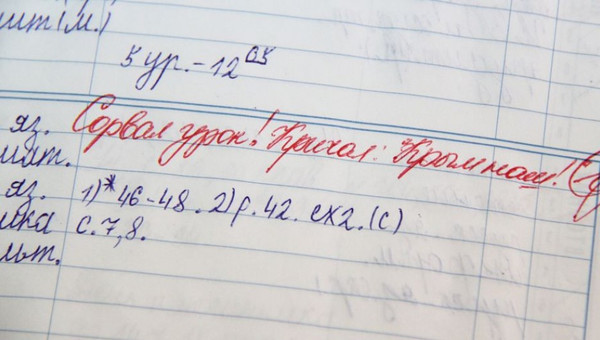 шт(м.)
5 ур. - 12⁰⁵
яз. Сорвал урок! Кричал: Крым наш!
мат.
яз. 1)* 46-48. 2) р. 42. сх2. (с)
ика с. 7, 8.
ьт.